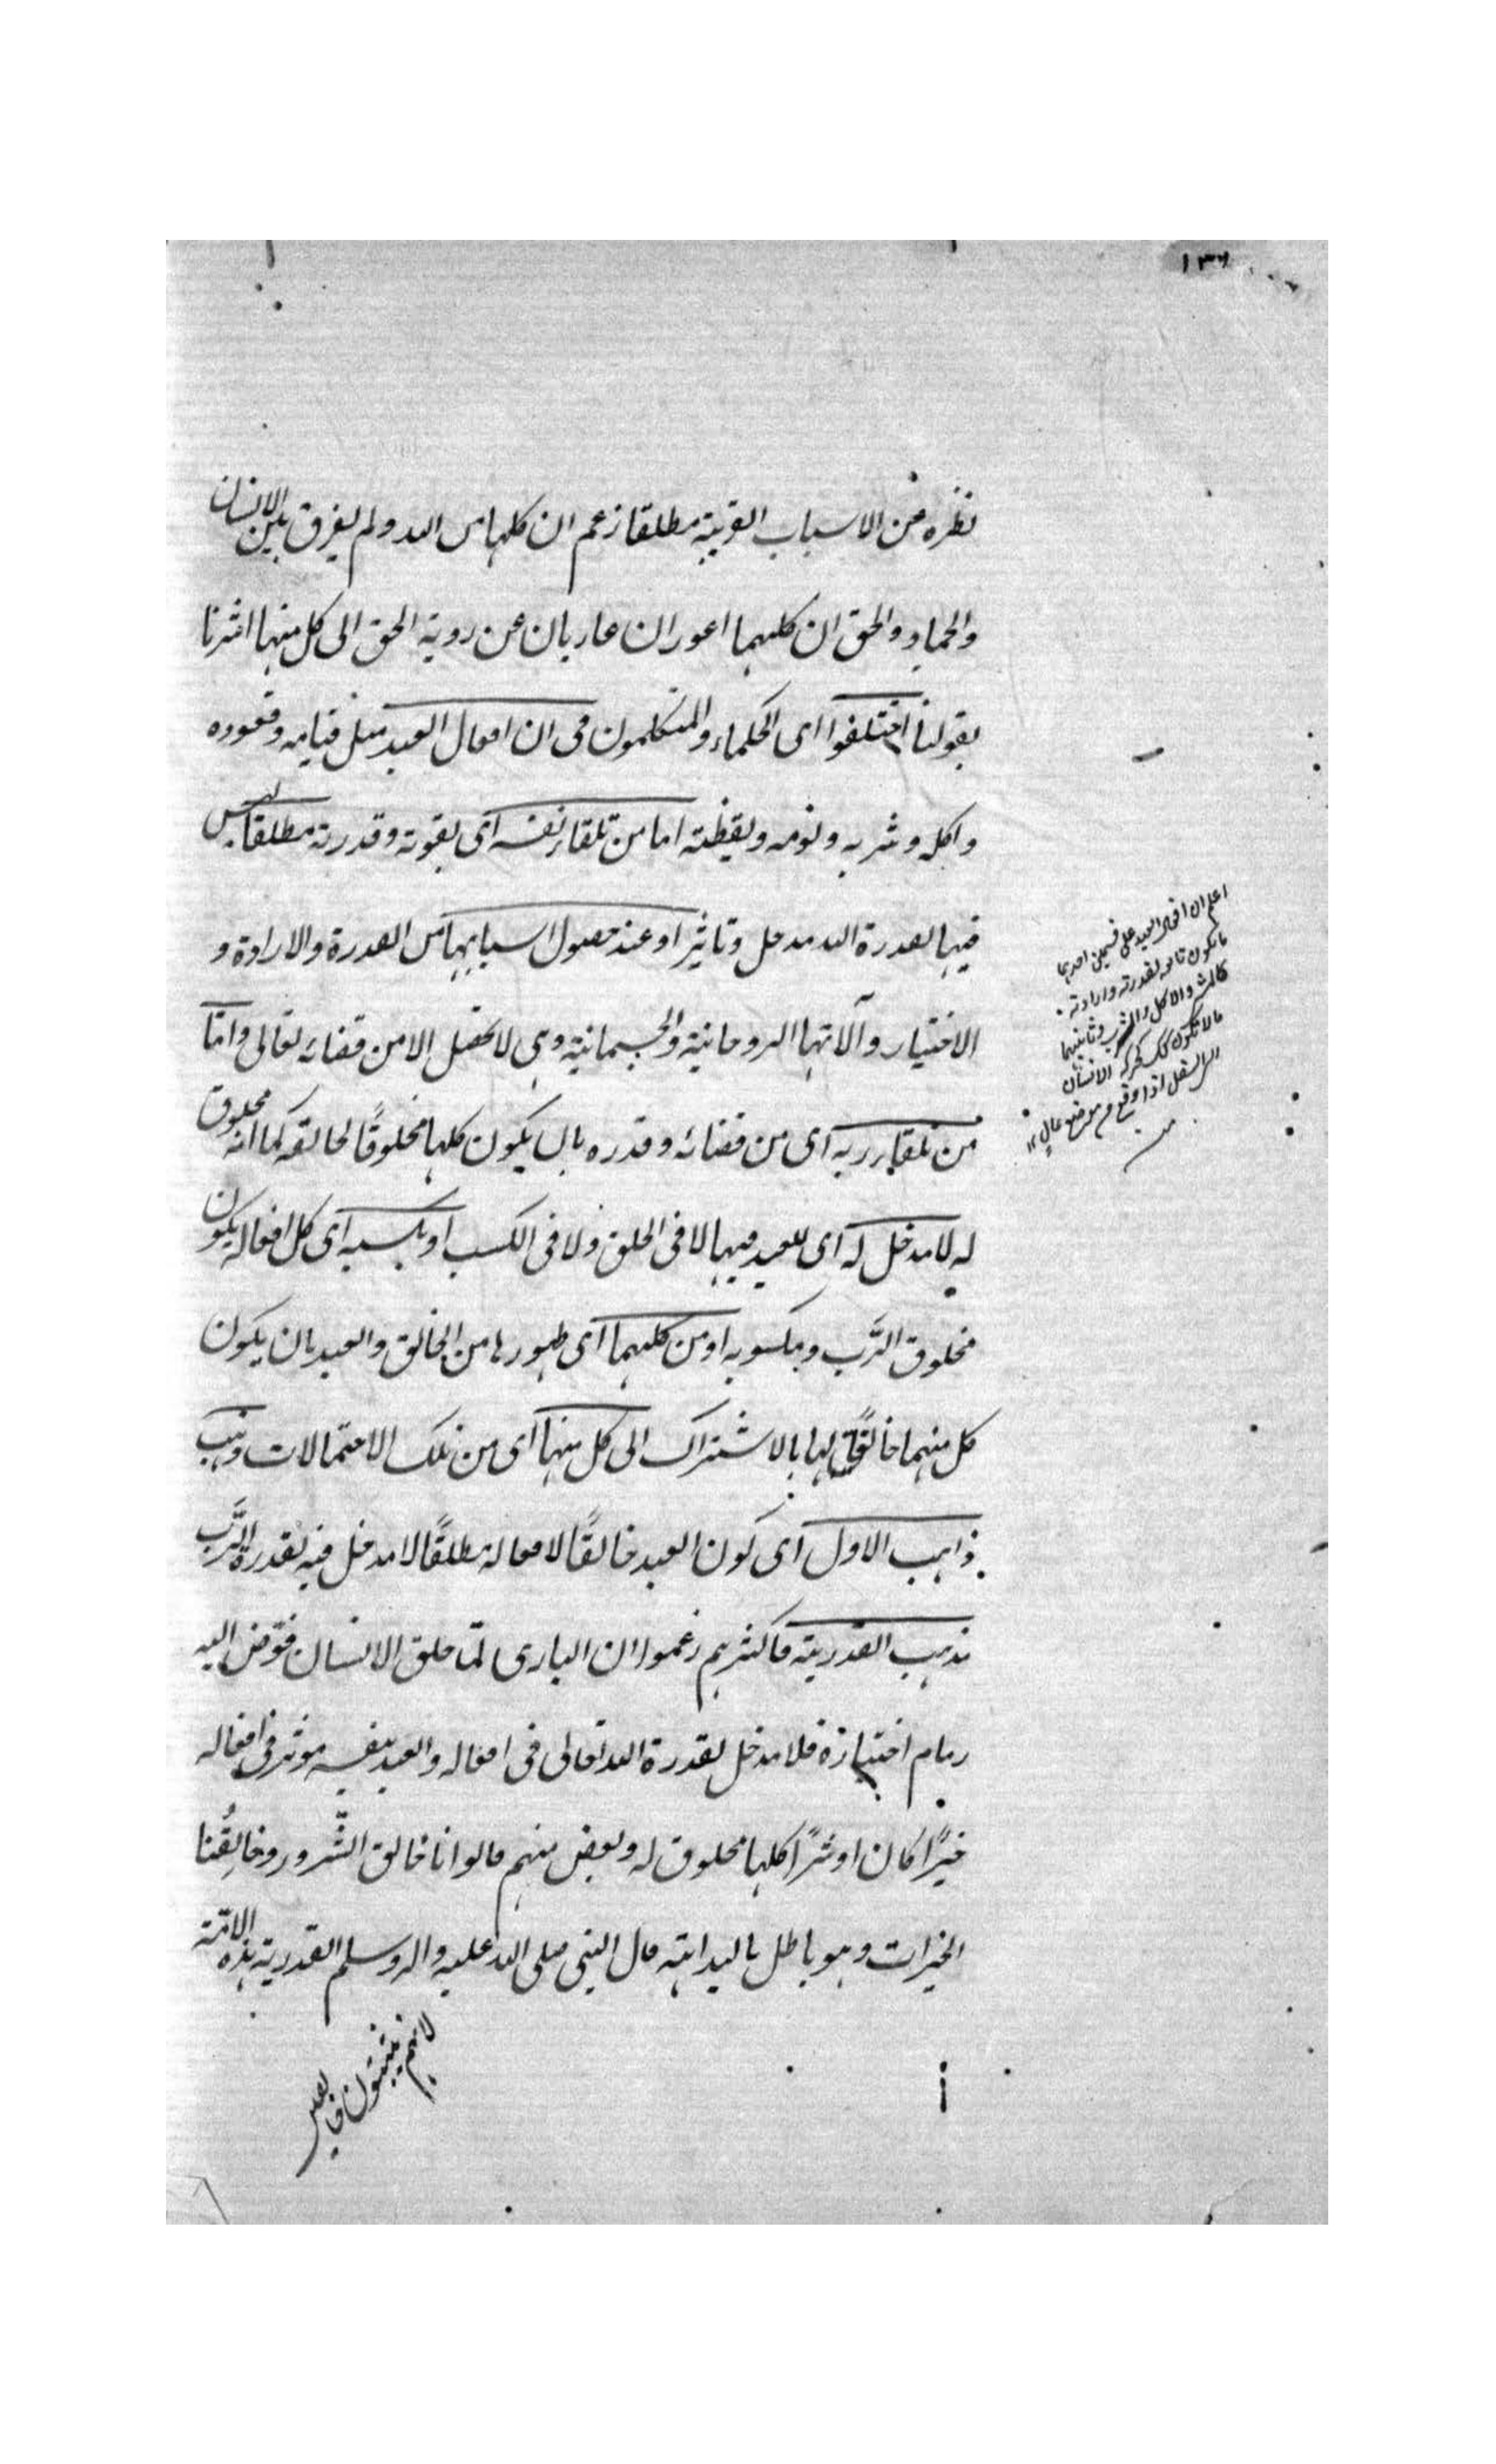 ١٣٦
نظره عن الاسباب القريبة مطلقا زعم ان كلها من الله ولم يفرق بين الانسان
والجماد والحق ان كليهما اعوران عاريان عن روية الحق الى كل منهما اشرنا
بقولنا اختلفوا اى الحكماء والمتكلمون فى ان افعال العبد مثل قيامه وقعوده
واكله وشربه ونومه ويقظته اما من تلقاء نفسه اى بقوته وقدرته مطلقا ليس
فيها لقدرة الله مدخل وتاثير او عند حصول اسبابها من القدرة والارادة و
الاختيار وآلاتها الروحانية والجسمانية وهى لا تحصل الا من قضائه تعالى واما
من تلقاء ربه اى من قضائه وقدره بان يكون كلها مخلوقًا لخالقه كما انه مخلوق
له لا مدخل له اى للعبد فيها لا فى الخلق ولا فى الكسب او بكسبه اى كل افعاله يكون
مخلوق الرَّب ومكسوبه او من كليهما اى ظهورها من الخالق والعبد بان يكون
كل منهما خالقًا لها بالاشتراك الى كل منها اى من تلك الاحتمالات ذهب
ذاهب الاول اى كون العبد خالقًا لافعاله مطلقًا لا مدخل فيه لقدرة الرَّب
مذهب القدرية فاكثرهم زعموا ان البارى لمّا خلق الانسان فوّض اليه
زمام اختيازه فلا مدخل لقدرة الله تعالى فى افعاله والعبد بنفسه موثر فى افعاله
خيرًا كان او شرًا كلها مخلوق له وبعض منهم قالوا انا خالق الشّرور وخالِقُنا
الخيرات وهو باطل بالبداهة قال النبى صلى الله عليه واله وسلم القدرية هذه الامّة
لانهم يثبتون فاعلين
اعلم ان افعال العبد على قسمين احدهما
ما يكون تابعه لقدرته وارادته
كالمشى والاكل والشرب وثانيهما
ما لا تكون كك كحركة الانسان
الى السفل اذا وقع من موضع عالٍ ١٢
منه